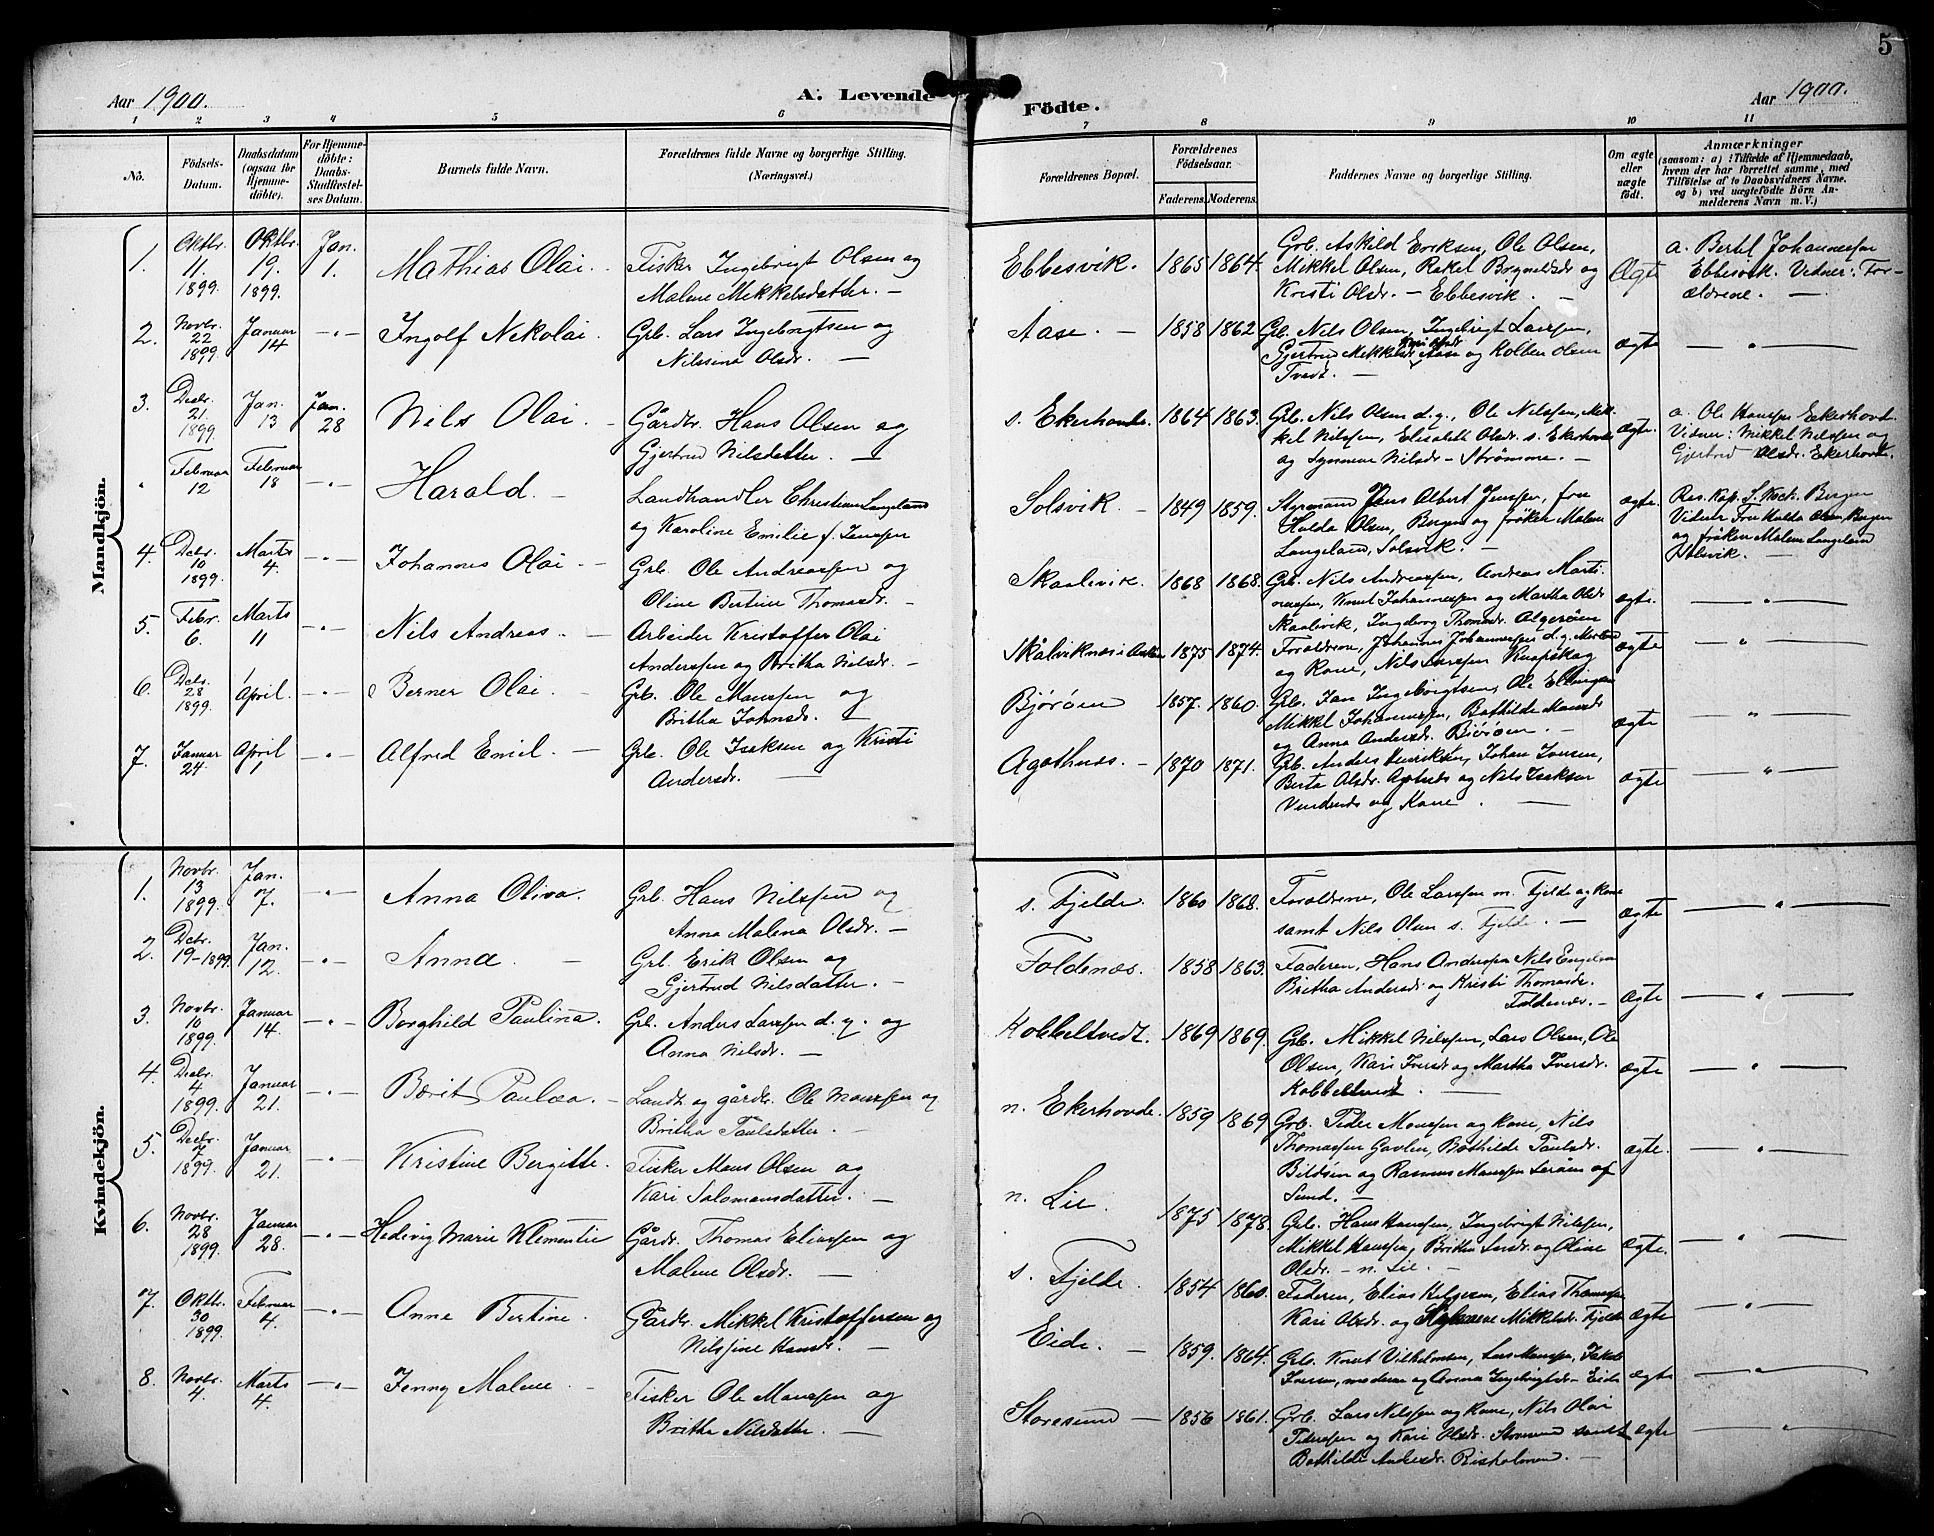 5
Aar 1900.
A. Levende Födte.
Aar 1900.
1 2 3 4 5 6 7 8 9 10 11
No.
Födsels-
Datum.
Daabsdatum
(ogsaa for
Hjemme-
döbte).
For Hjemme-
döbte:
Daabs-
Stadfestel-
ses Datum.
Barnets fulde Navn.
Forældrenes fulde Navne og borgerlige Stilling.
(Næringsvei.)
Forældrenes Bopæl.
Forældrenes
Födselsaar.
Faderens. Moderens.
Faddernes Navne og borgerlige Stilling.
Om ægte
eller
uægte
födt.
Anmærkninger
(saasom: a) i Tilfælde af Hjemmedaab,
hvem der har forrettet samme, med
Tilföielse af to Daabsvidners Navne.
og b) ved uægtefödte Börn An-
melderens Navn m. V.)
Mandkjön.
1.
Oktbr.
11.
1899
Oktbr.
19.
1899.
Jan.
1.
Mathias Olai.
Fisker Ingebrigt Olsen og
Malene Mikkelsdatter. —
Ebbesvik.
1865 1864.
Grb. Askild Eriksen, Ole Olsen,
Mikkel Olsen, Rakel Brynildsdr og
Kristi Olsdr. — Ebbesvik. —
Ægte
a. Bertel Johannessen
Ebbesvik. Vidner: For-
ældrene. —
2.
Novbr.
22
1899
Januar
14
— " —
Ingolf Nikolai.
Grb. Lars Ingebrigtsen og
Nilsina Olsdr. —
Aase. —
1858 1862
Grb. Nils Olsen, Ingebrigt Larssen,
Gjertrud Mikkelsdr Aase og Kolben Olsen
Tvedt. —
ægte
— " —
3.
Decbr.
21.
1899
Jan.
13
Jan.
28
Nils Olai. —
Gårdbr. Hans Olsen og
Gjertrud Nilsdatter. —
s. Ekerhovde.
1864 1863.
Grb. Nils Olsen d.y., Ole Nilssen, Mik-
kel Nilssen, Elisabeth Olsdr. s. Ekerhovde
og Synneve Nilsdr — Strømme. —
ægte.
a. Ole Hanssen Ekerhovd.
Vidner: Mikkel Nilssen og
Gjertrud Olsdr. Ekerhovd.
Februar
12
Februar
18
— " —
Harald. —
Landhandler Christian Langeland
og Karoline Emilie f. Jenssen
Solsvik. —
1849 1859.
Styrmand Jens Albert Jenssen, fru
Hulda Olsen, Bergen og frøken Malene
Langeland, Solsvik. —
ægte.
Res. Kap. Bergen
Vidner Fru Hulda Olsen Bergen
og frøken Malene Langeland
Solsvik. —
4.
Debr.
10
1899.
Marts
4.
— " —
Johannes Olai. —
Grb. Ole Andreassen og
Oline Bertine Thomasdr. —
Skaalevik.
1868 1868.
Grb. Nils Andreassen, Andreas Marti-
nussen, Knut Johannessen og Martha Olsdr
Skaalevik, Ingeborg Thomasdr. Algerøen
ægte.
— " —
5.
Febr.
6.
Marts
11
— " —
Nils Andreas. —
Arbeider Kristoffer Olai
Anderssen og Britha Nilsdr. —
1875 1874.
Forældrene, Johannes Johannessen d.y.
og Kone, Nils Larssen Knapskog
ægte
— " —
6.
Debr.
28
1899.
April.
1
— " —
Berner Olai. —
Grb. Ole Monssen og
Britha Johnsdr. —
Bjørøen
1857. 1860.
Grb. Jan Ingebrigtsen, Ole Ellingsen
Mikkel Johannessen, Bothilde Monsdr
og Anna Andersdr. Bjørøen. —
ægte
— " —
7.
Januar
24.
April
1
— " —
Alfred Emil. —
Grb. Ole Isaksen og Kristi
Andersdr. —
Agothnes. —
1870 1871.
Grb. Anders Henriksen, Johan Iversen,
Berta Olsdr. Agotnes og Nils Isaksen
og Kone. —
ægte
— " —
Kvindekjön.
1.
Novbr.
13
1899.
Jan.
7.
— " —
Anna Oliva.
Grb. Hans Nilssen og
Anna Malena Olsdr. —
s. Fjelde.
1860 1868.
Forældrene, Ole Larssen m. Fjelde og kone
samt Nils Olsen s. Fjelde. —
ægte
— " —
2.
Debr.
19-1899.
Jan.
12.
— " —
Anna. —
Grb. Erik Olsen og
Gjertrud Nilsdatter. —
Foldenæs.
1858 1863.
Faderen, Hans Anderssen, Nils Engelsen
Britha Andersdr og Kristi Thomasdr.
Foldenæs. —
ægte
— " —
3.
Novbr.
10
1899.
Januar
14.
— " —
Borghild Paulina.
Grb. Anders Larssen d. y. og
Anna Nilsdr. —
Kobbeltvedt.
1869 1869.
Grb. Mikkel Nilssen, Lars Olsen, Ole
Olsen, Kari Iversdr og Martha Iversdr.
Kobbeltvedt. —
ægte
— " —
4.
Decbr.
4
1899.
Januar
21.
— " —
Berit Paulea. —
Landh. og gårdbr. Ole Monssen og
Britha Paulsdatter. —
n. Ekerhovde.
1859 1869
Grb. Peder Monssen og kone, Nils
Thomassen Gavlen, Bothilde Paulsdr.
Bildøen og Rasmus Monssen Lerøen af
Sund. —
ægte.
— " —
5.
Decbr.
7
1899.
Januar
21.
— " —
Kristine Bergitte.
Fisker Mons Olsen og
Kari Salomonsdatter. —
n. Lie.
1875 1878.
Grb. Hans Hanssen, Ingebrigt Nilssen,
Mikkel Hanssen, Britha Larsdr. og Oline
Olsdr. — n. Lie. —
ægte.
— " —
6.
Novbr.
28
1899.
Januar
28.
— " —
Hedevig Marie Klementie
Gårdbr. Thomas Eliassen og
Malene Olsdr. —
s. Fjelde.
1854 1860.
Faderen, Elias Helgesen, Elias Thomassen
Kari Olsdr. og Mikkelsdr. Fjelde
ægte
— " —
7.
Oktbr.
30
1899.
Februar
4.
— " —
Anne Bertine.
Gårdbr. Mikkel Kristoffersen og
Nilssine Hansdr. —
Eide. —
1859. 1864.
Grb. Knut Vilhelmsen, Lars Monssen, Jakob
Iversen, moderen og Anna Ingebrigtsdr — Eide
ægte
— " —
8.
Novbr.
4.
Marts
4.
— " —
Jenny Malene. —
Fisker Ole Monssen og
Britha Nilsdatter. —
Storesund —
1856 1861.
Grb. Lars Nilssen og Kone, Nils Olai
Pederssen og Kari Olsdr. Storesund samt
Bothilde Andersdr. Risholmen. —
ægte
— " —